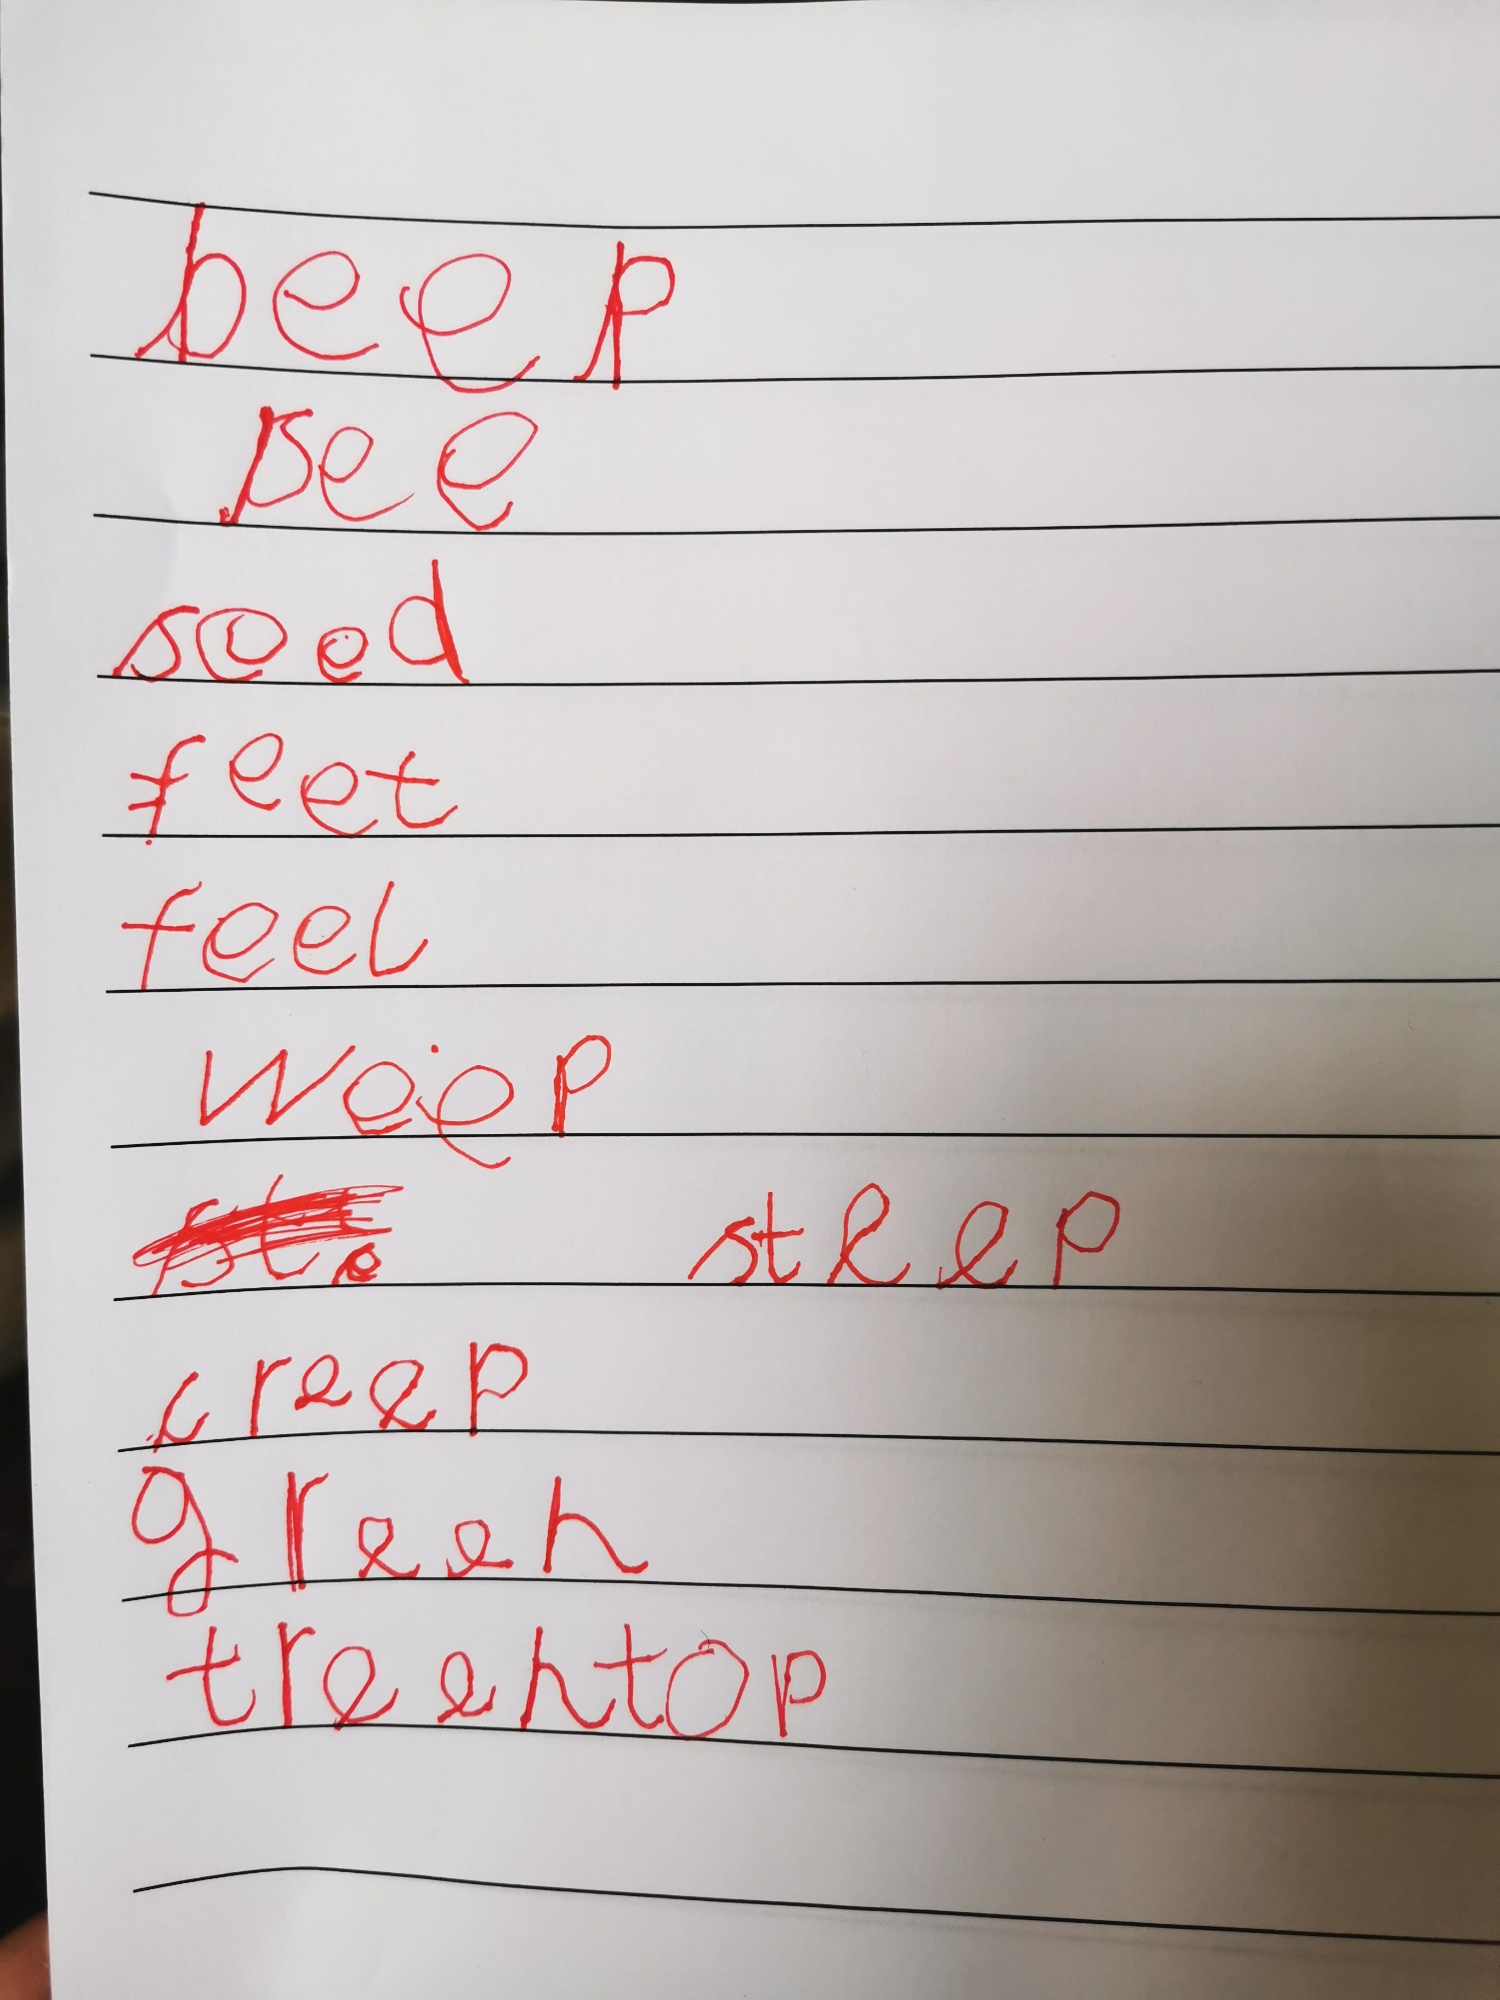 beep
see
seed
feet
feel
weep
steep
creep
green
treentop